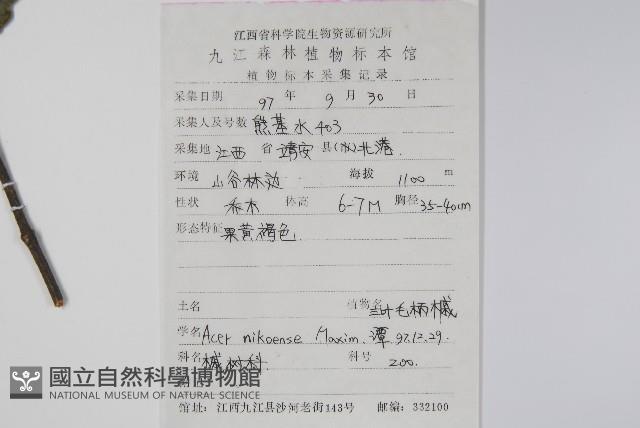 江西省科学院生物资源研究所
九江森林植物标本馆
植物标本采集记录
采集日期 97 年 9 月 30 日
采集人及号数 熊基水 403
采集地 江西 省 靖安 县 北港.
环境 山谷林边 海拔 1100 m
性状 乔木 体高 6-7M 胸径 35-40cm
形态特征 果黄褐色
土名 植物名 三叶毛柄槭
学名 Acer nikoense Maxim. 谭 97.12.29.
科名 槭树科 科号 200.
國立自然科學博物館
NATIONAL MUSEUM OF NATURAL SCIENCE
馆址：江西九江县沙河老街143号 邮编：332100